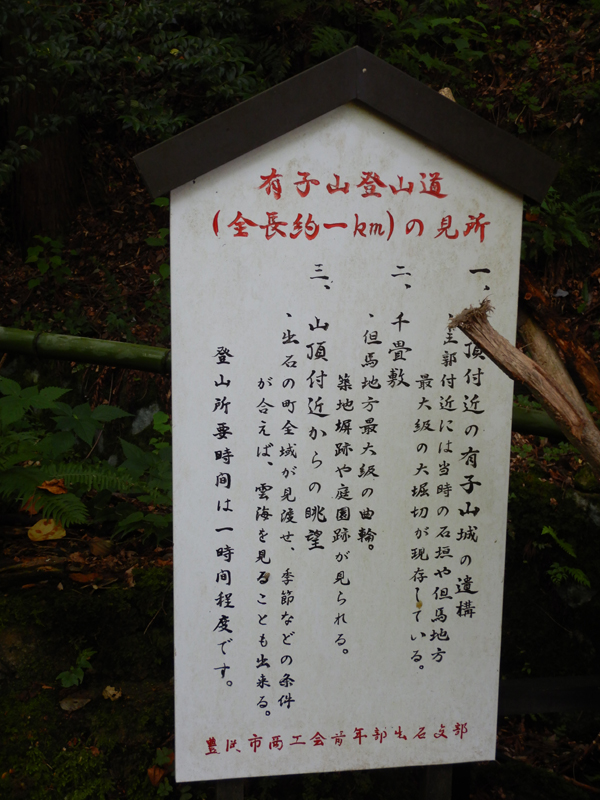 有子山登山道
(全長約一km)の見所
一、頂付近の有子山城の遺構
、主郭付近には当時の石垣や但馬地方
最大級の大堀切が現存している。
二、千畳敷
、但馬地方最大級の曲輪。
築地塀跡や庭園跡が見られる。
三、山頂付近からの眺望
、出石の町全域が見渡せ、季節などの条件
が合えば、雲海を見ることも出来る。
登山所要時間は一時間程度です。
豊岡市商工会青年部出石支部